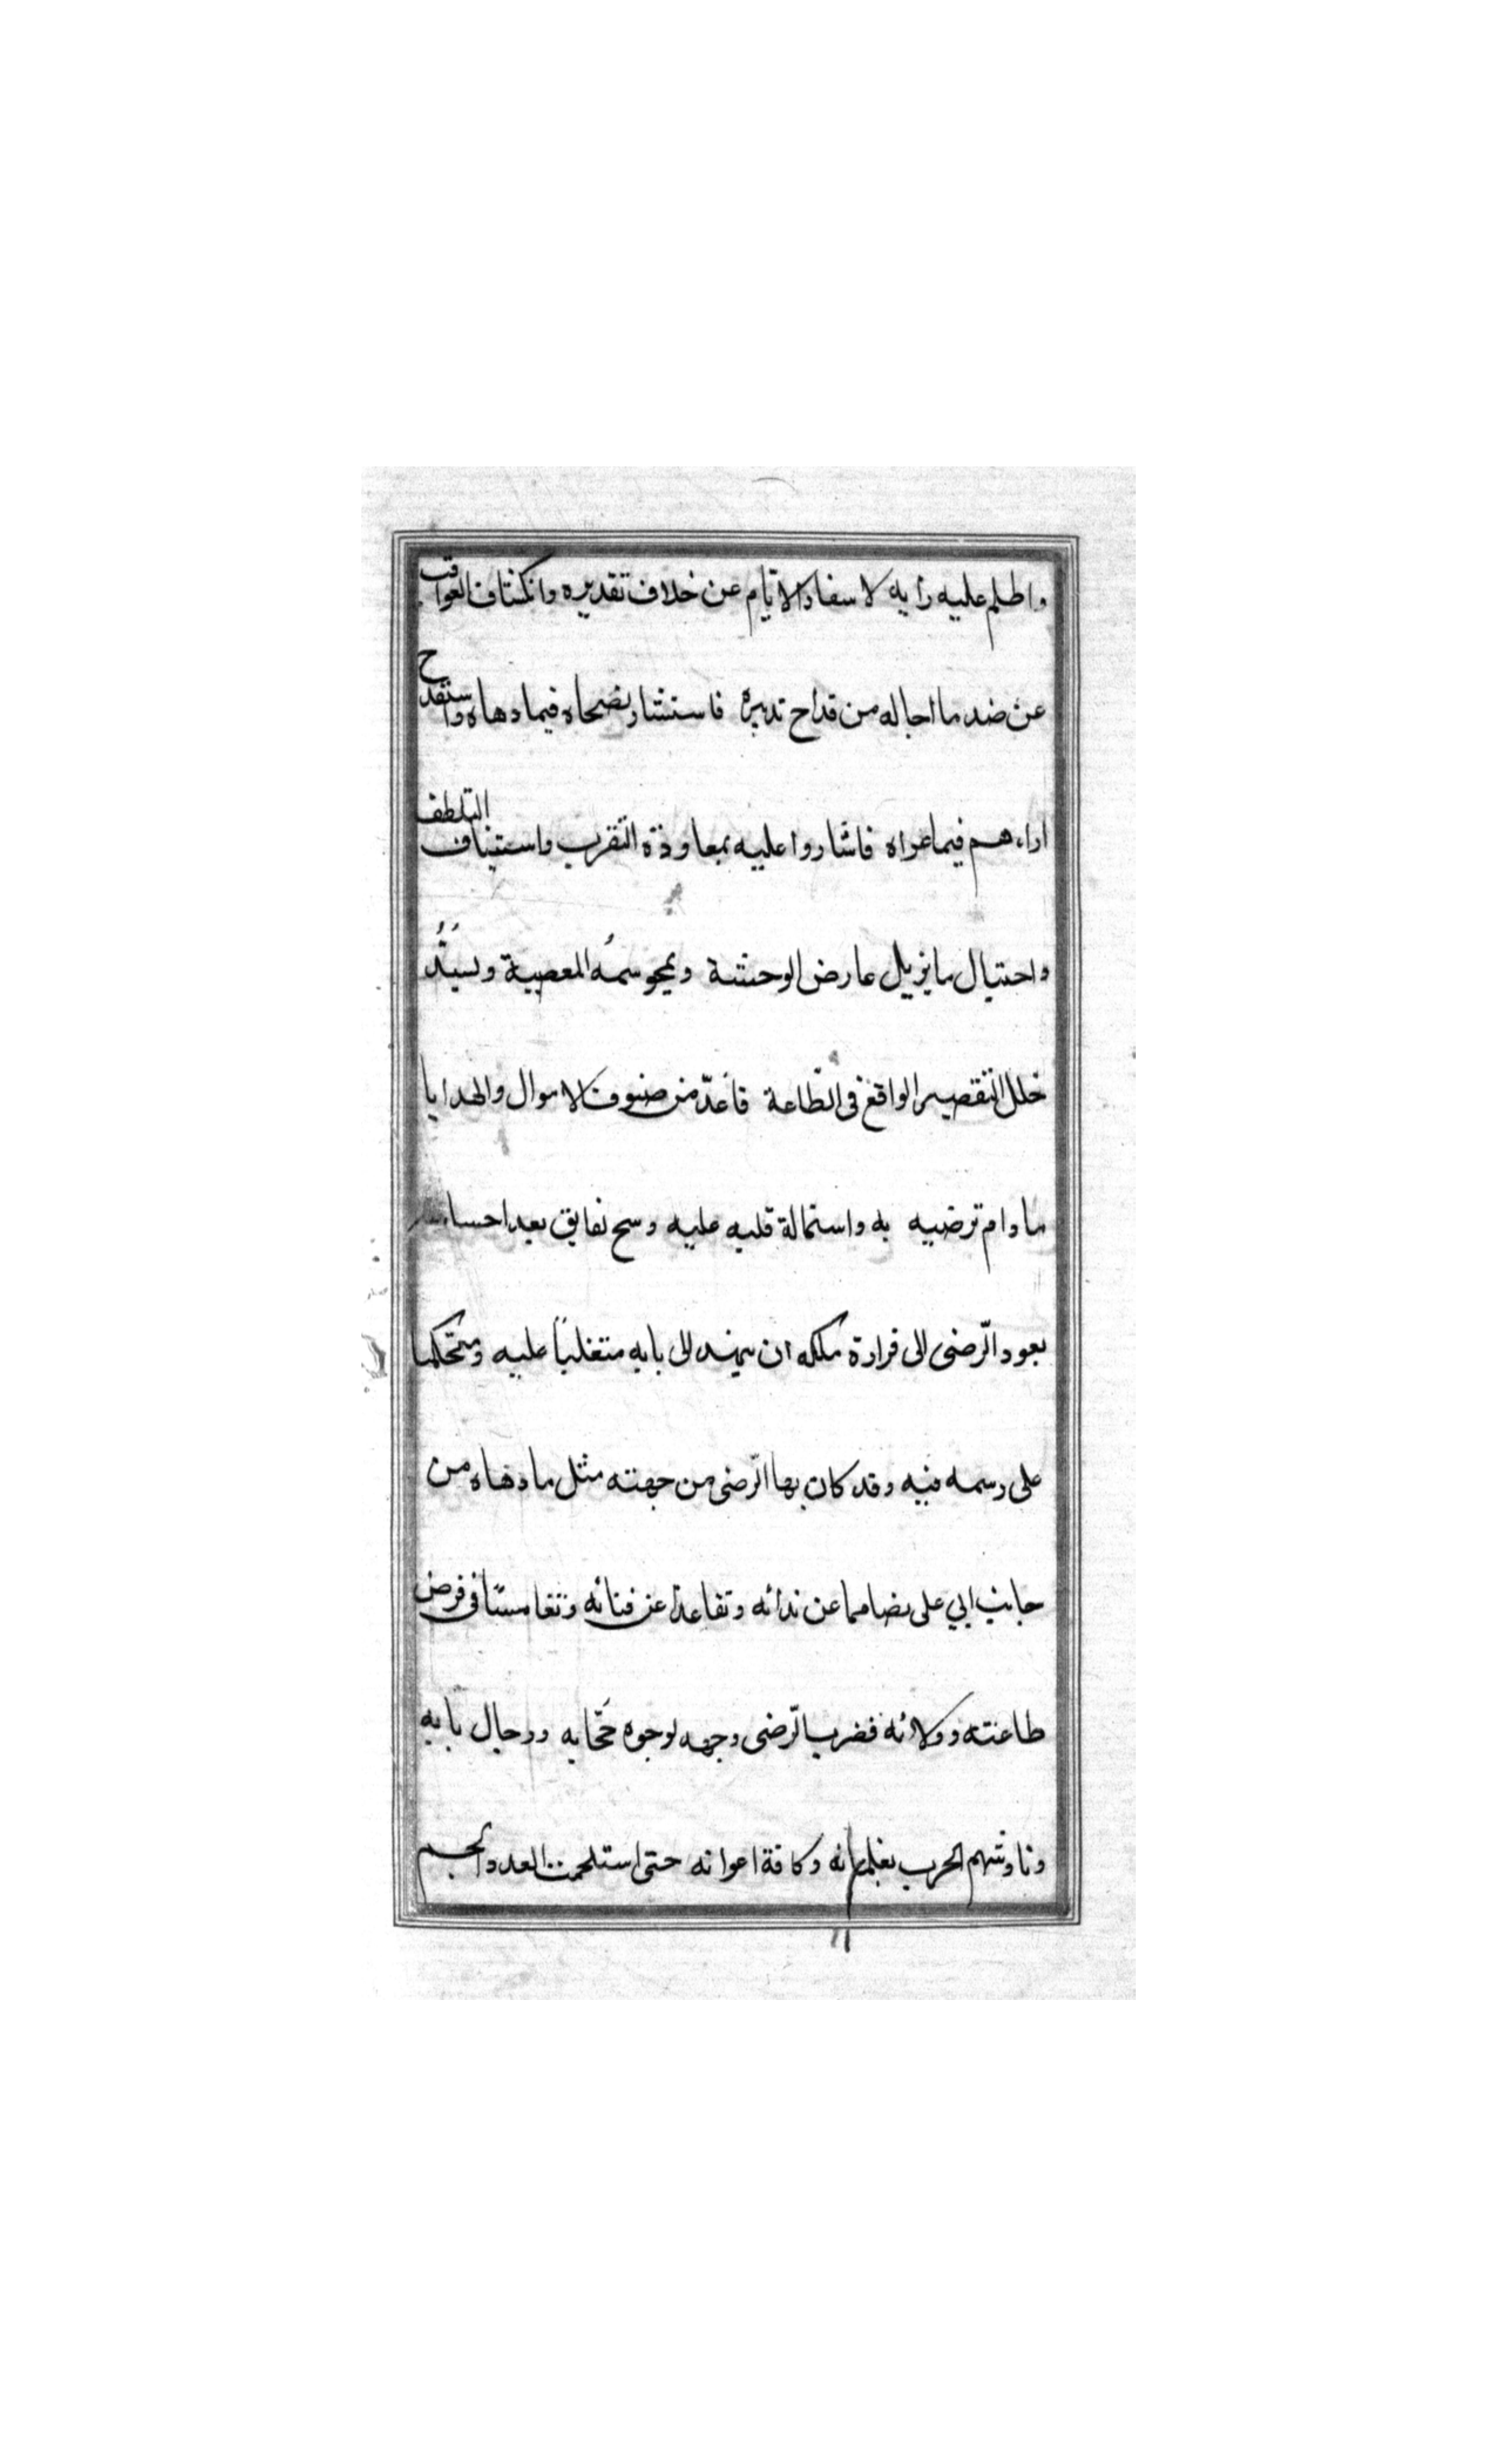 واظلم عليه رايه لاسفار الايام عن خلاف تقديره وانكشاف العواقب
عن ضد ما اجاله من قداح تدبيره فاستشار نصحاه فيما دهاه واستقدح
اراءهم فيما عراه فاشاروا عليه بمعاودة التقرب واستيناف التلطف
واحتيال ما يزيل عارض الوحشة ويمحو سمة المعصية ويسُدُّ
خلل التقصير الواقع في الطّاعة فاعدّ من صنوف الاموال والهدايا
ما دام ترضيه به واستمالة قلبه عليه وسح نفايق بعد احسا
بعود الرّضى الى قرارة ملكه ان ينهد الى بابه متغلباً عليه ومتحكما
على رسمه فيه وقد كان بها الرّضى من جهته مثل ما دهاه من
جانب ابي على تصامما عن ندائه وتقاعدا عن فنائه وتغامسا في فرض
طاعته وولائه فضرب الرّضى وجهه لوجوه حجّابه ورجال بابه
وناوشهم الحرب بغلمانه وكافة اعوانه حتى استلحمت العدد الجم